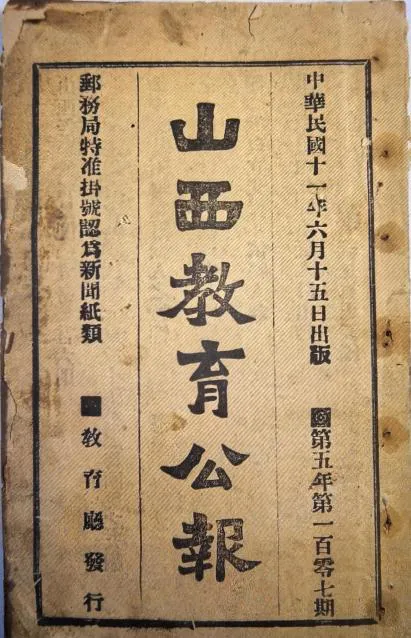 中華民國十一年六月十五日出版 第五年第一百零七期
山西教育公報
郵務局特准掛號認爲新聞紙類 教育廳發行